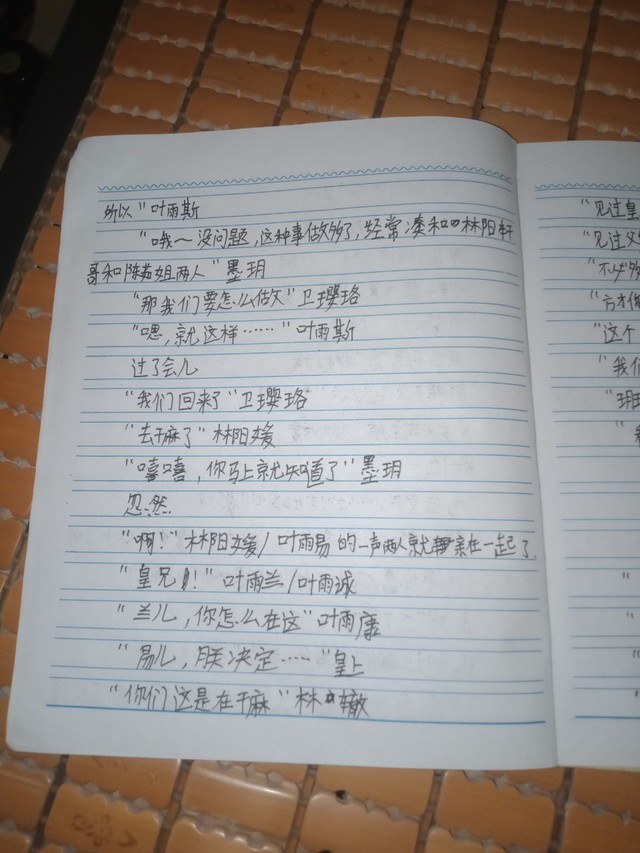 所以”叶雨斯
“哦~没问题,这种事做够了,经常凑和林阳轩
哥和陈茹姐两人”墨玥
“那我们要怎么做”卫璎珞
“嗯,就这样……”叶雨斯
过了会儿
“我们回来了”卫璎珞
“去干麻了”林阳媛
“嘻嘻,你马上就知道了”墨玥
忽然
“啊!”林阳媛/叶雨易的一声两人就亲在一起了
“皇兄!”叶雨兰/叶雨诚
“兰儿,你怎么在这”叶雨康
“易儿,朕决定……”皇上
“你们这是在干麻”林辙
“见过皇
“见过父
“不必多
“方才
“这个
“我们
“玥玥